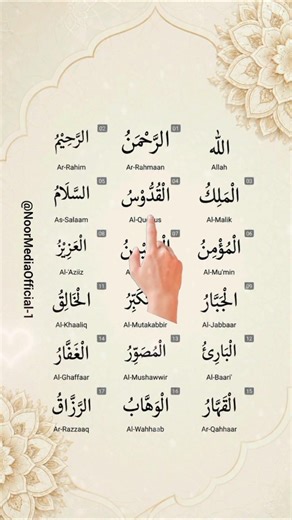 الله الرَّحْمَنُ 01 الرَّحِيْمُ 02
Allah Ar-Rahmaan Ar-Rahim
الْمَلِكُ 03 الْقُدُّوْسُ 04 السَّلَامُ 05
Al-Malik As-Salaam
الْمُؤْمِنُ 06 الْعَزِيْزُ 08
Al-Mu'min Al-'Aziiz
الْجَبَّارُ 09 الْخَالِقُ 11
Al-Jabbaar Al-Mutakabbir Al-Khaaliq
الْبَارِئُ 12 الْمُصَوِّرُ 13 الْغَفَّارُ 14
Al-Baari' Al-Mushawwir Al-Ghaffaar
الْقَهَّارُ 15 الْوَهَّابُ 16 الرَّزَّاقُ 17
Al-Qahhaar Al-Wahhaab Ar-Razzaaq
@NoorMediaOfficial-1